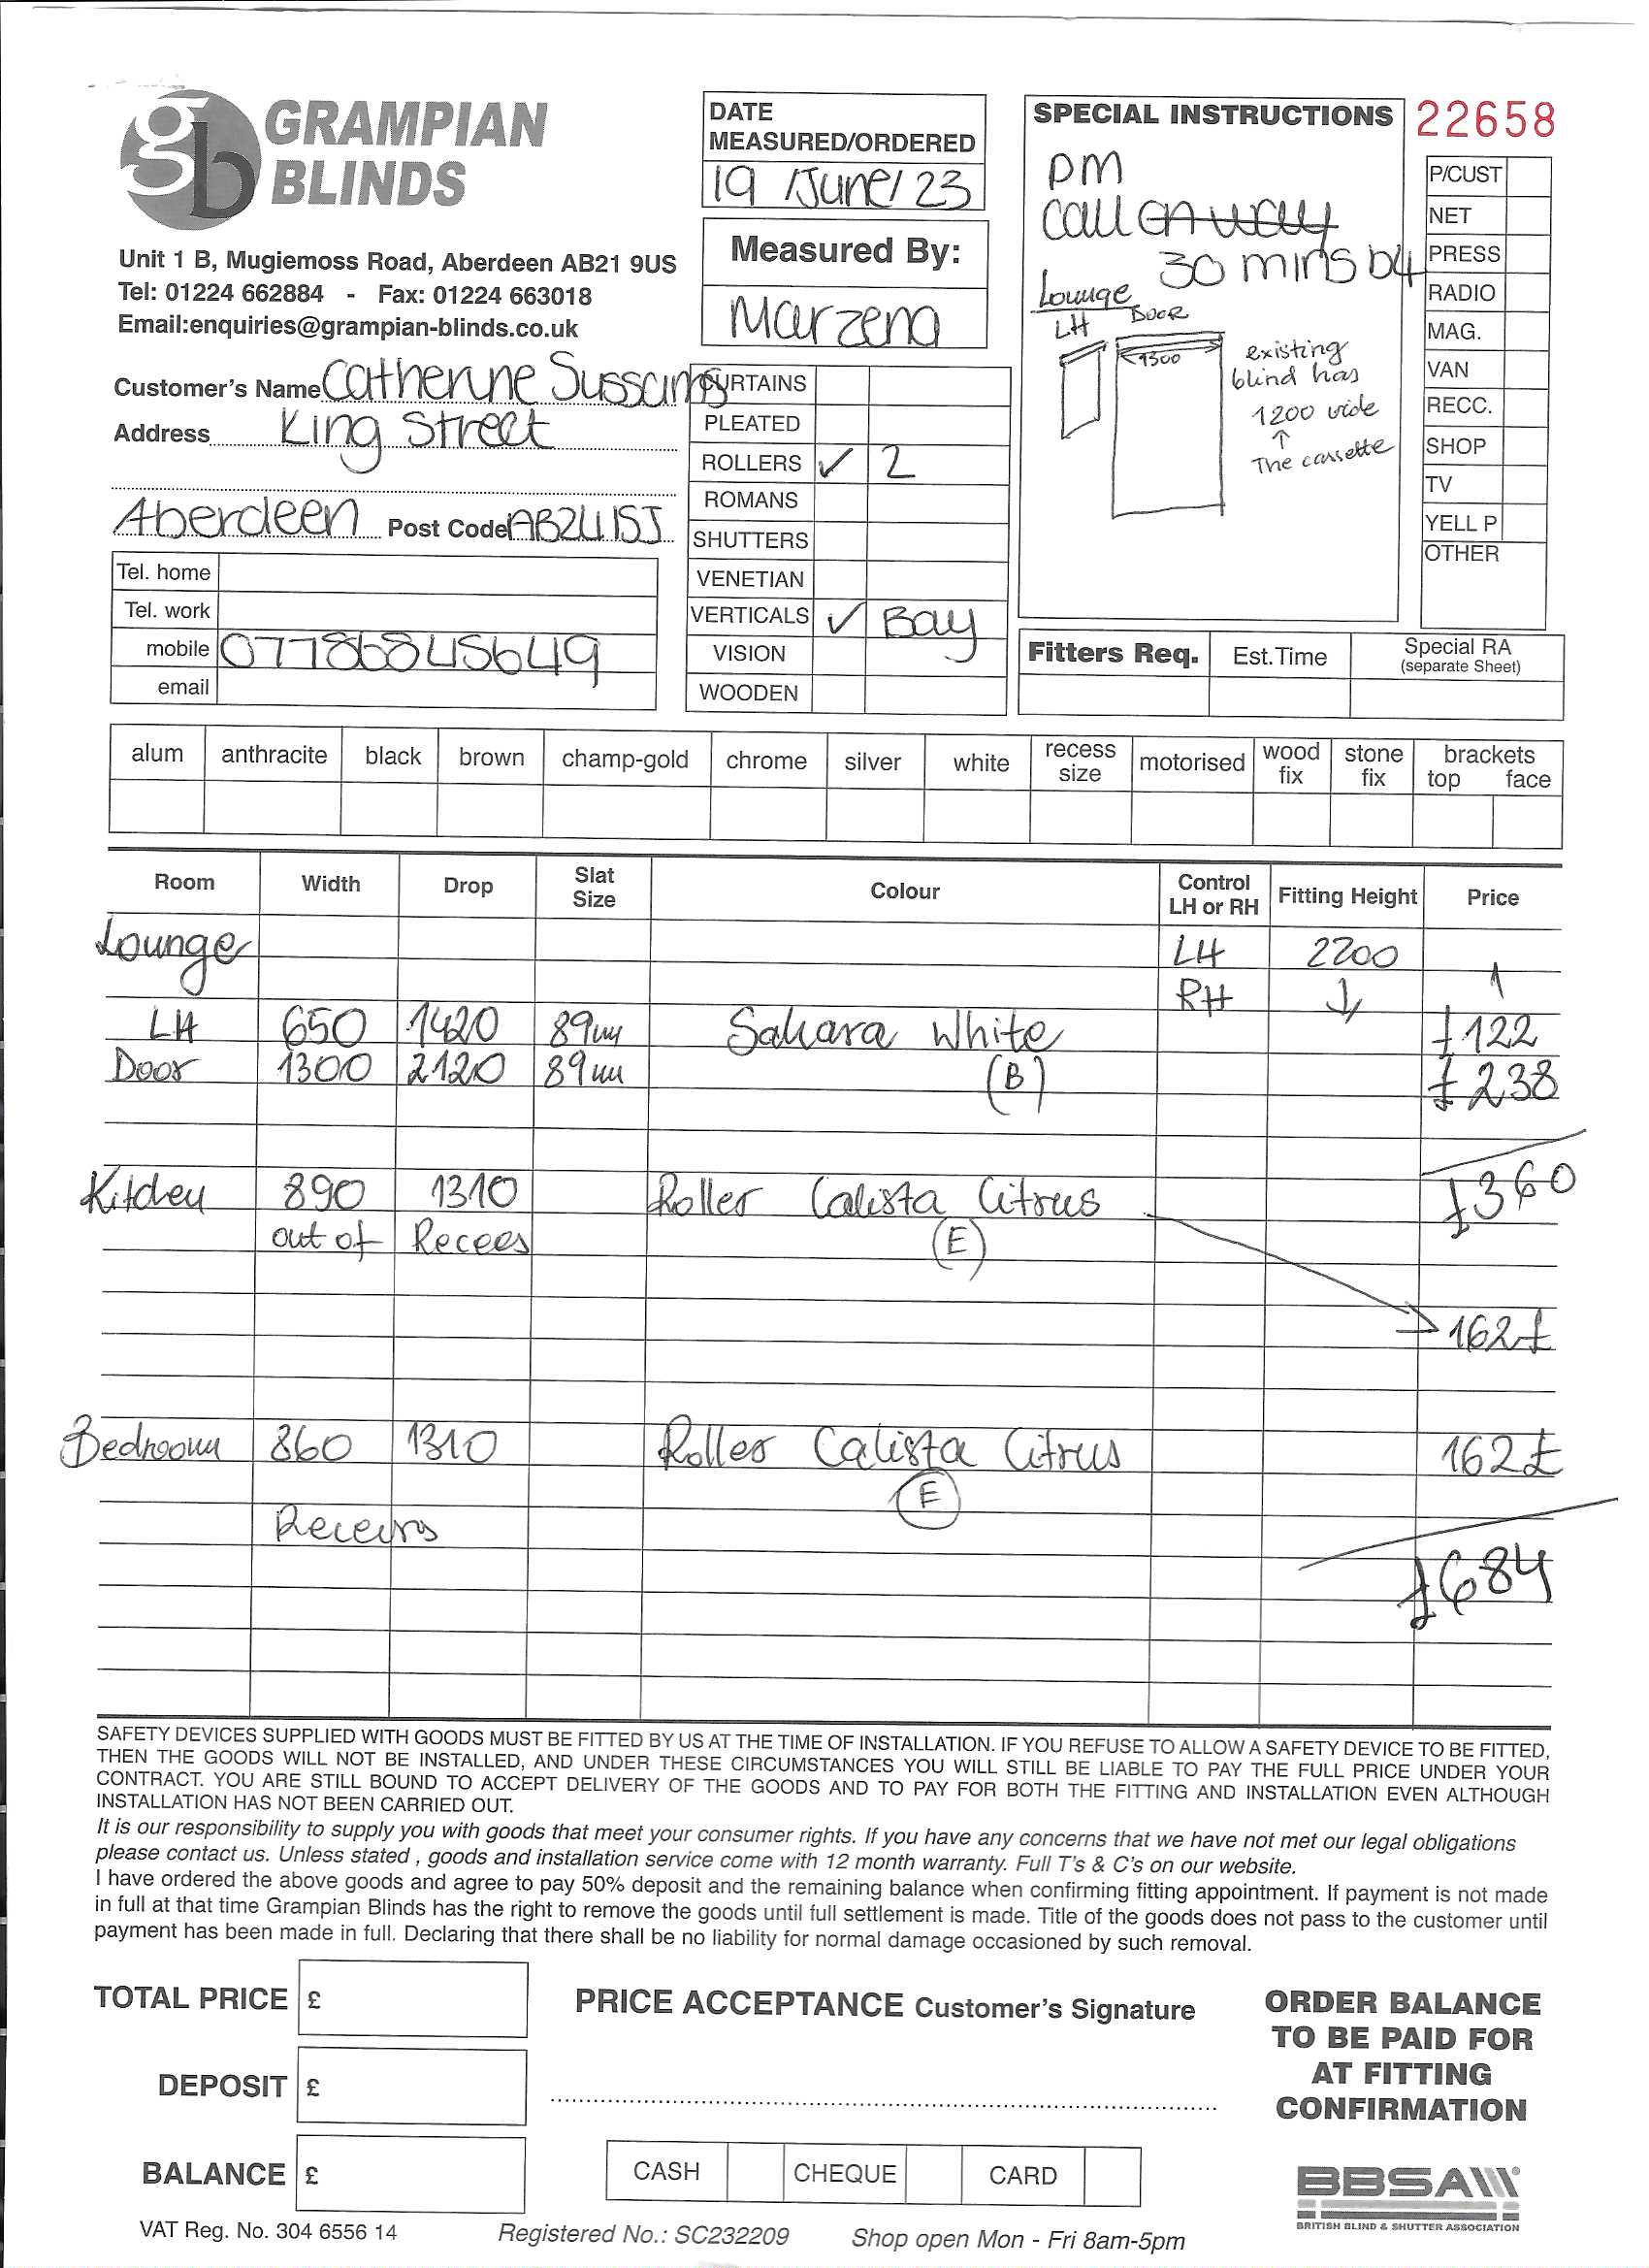 gb GRAMPIAN BLINDS
Unit 1 B, Mugiemoss Road, Aberdeen AB21 9US
Tel: 01224 662884 - Fax: 01224 663018
Email:enquiries@grampian-blinds.co.uk
DATE
MEASURED/ORDERED
19 /June/ 23
Measured By:
Marzena
SPECIAL INSTRUCTIONS
pm
call on way
30 mins b4
Lounge
LH DOOR
1300
existing
blind has
1200 wide
↑
The cassette
22658
P/CUST
NET
PRESS
RADIO
MAG.
VAN
RECC.
SHOP
TV
YELL P
OTHER
Customer's Name Catherine Sussams
Address King Street
Aberdeen Post Code AB24 1SJ
Tel. home
Tel. work
mobile 07786845649
email
CURTAINS
PLEATED
ROLLERS ✓ 2
ROMANS
SHUTTERS
VENETIAN
VERTICALS ✓ Bay
VISION
WOODEN
Fitters Req. Est.Time Special RA
(separate Sheet)
alum anthracite black brown champ-gold chrome silver white recess size motorised wood fix stone fix brackets top face
Room Width Drop Slat Size Colour Control LH or RH Fitting Height Price
Lounge LH 2200
RH ↓
LH 650 1420 89mm Sahara White £122
Door 1300 2120 89mm (B) £238
Kitchen 890 1310 Roller Calista Citrus £360
out of Recees (E)
162£
Bedroom 860 1310 Roller Calista Citrus 162£
(E)
£684
SAFETY DEVICES SUPPLIED WITH GOODS MUST BE FITTED BY US AT THE TIME OF INSTALLATION. IF YOU REFUSE TO ALLOW A SAFETY DEVICE TO BE FITTED,
THEN THE GOODS WILL NOT BE INSTALLED, AND UNDER THESE CIRCUMSTANCES YOU WILL STILL BE LIABLE TO PAY THE FULL PRICE UNDER YOUR
CONTRACT. YOU ARE STILL BOUND TO ACCEPT DELIVERY OF THE GOODS AND TO PAY FOR BOTH THE FITTING AND INSTALLATION EVEN ALTHOUGH
INSTALLATION HAS NOT BEEN CARRIED OUT.
It is our responsibility to supply you with goods that meet your consumer rights. If you have any concerns that we have not met our legal obligations
please contact us. Unless stated , goods and installation service come with 12 month warranty. Full T's & C's on our website.
I have ordered the above goods and agree to pay 50% deposit and the remaining balance when confirming fitting appointment. If payment is not made
in full at that time Grampian Blinds has the right to remove the goods until full settlement is made. Title of the goods does not pass to the customer until
payment has been made in full. Declaring that there shall be no liability for normal damage occasioned by such removal.
TOTAL PRICE £
DEPOSIT £
BALANCE £
PRICE ACCEPTANCE Customer's Signature
CASH CHEQUE CARD
ORDER BALANCE
TO BE PAID FOR
AT FITTING
CONFIRMATION
BBSA
BRITISH BLIND & SHUTTER ASSOCIATION
VAT Reg. No. 304 6556 14 Registered No.: SC232209 Shop open Mon - Fri 8am-5pm